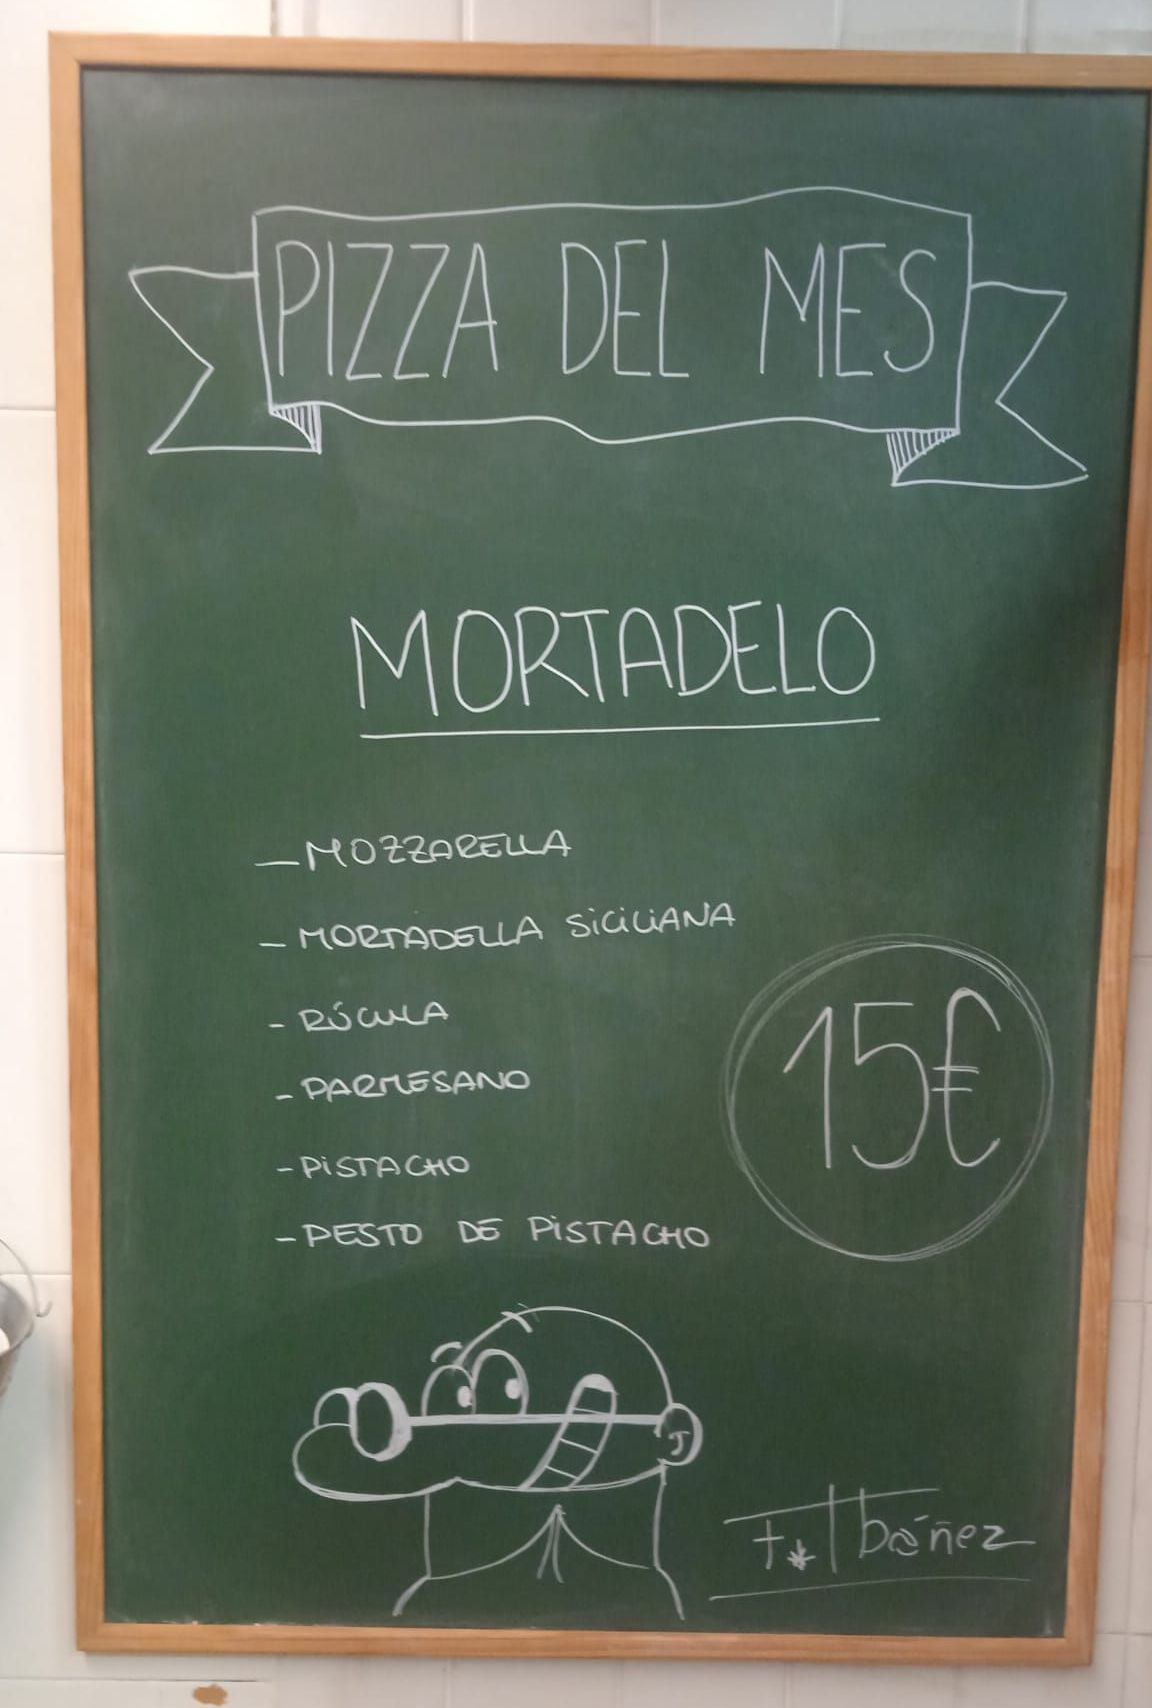 PIZZA DEL MES
MORTADELO
- MOZZARELLA
- MORTADELLA SiCiLiANA
- RÚCULA
- PARMESANO
- PiSTACHO
- PESTO DE PiSTACHO
15€
F. Ibáñez